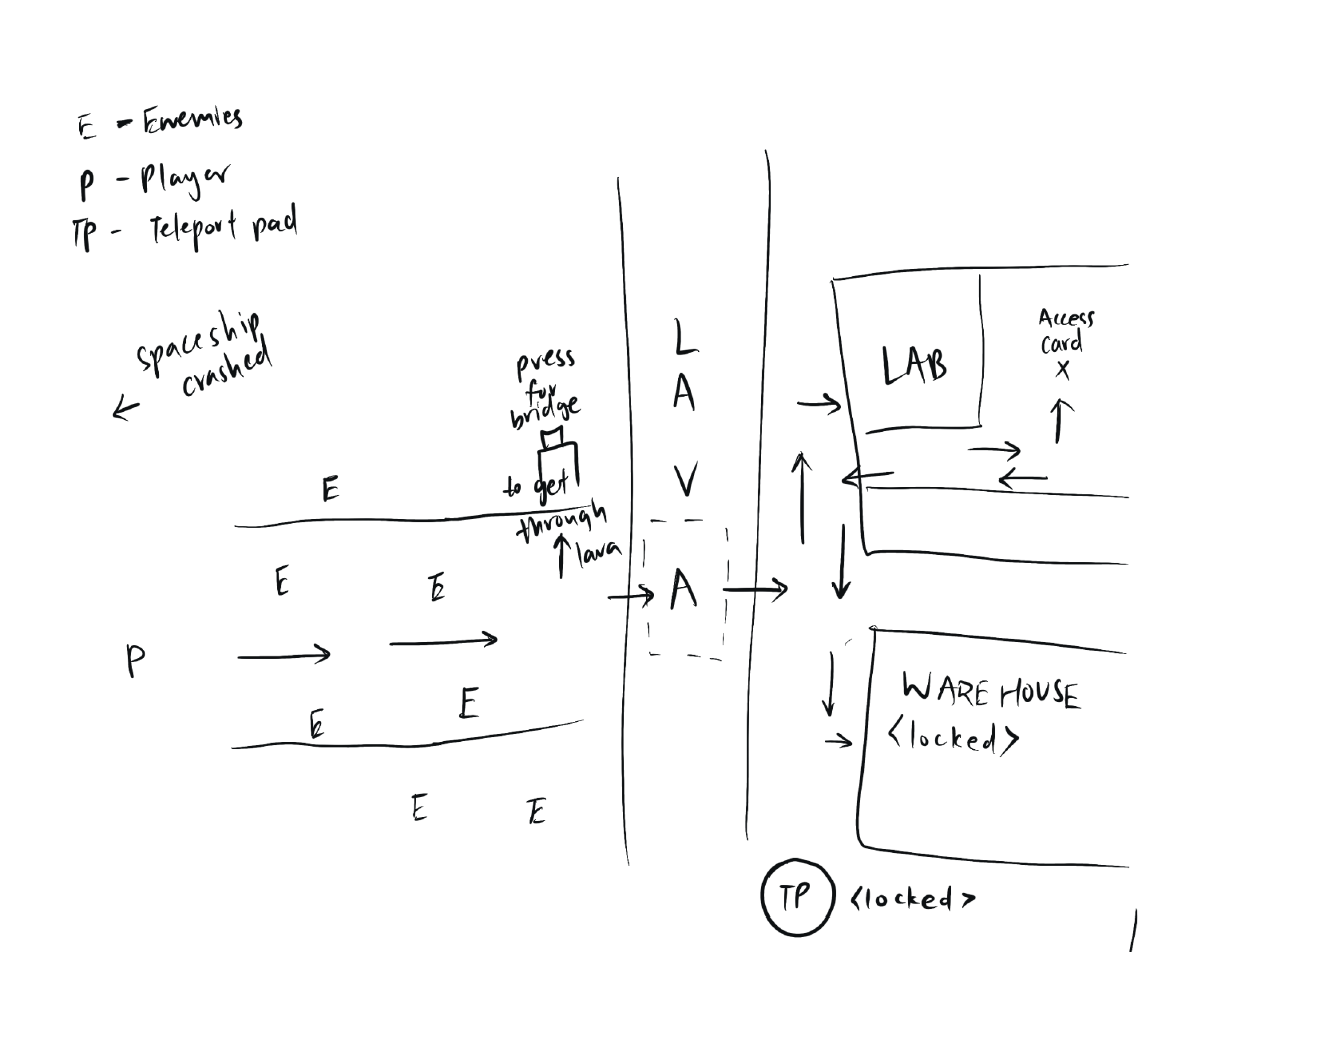 E - Enemies
P - Player
TP - Teleport pad
spaceship
crashed
press
for
bridge
to get
through
lava
E
E
E
P
E
E
E
E
L
A
V
A
LAB
Access
card
X
WAREHOUSE
<locked>
TP <locked>